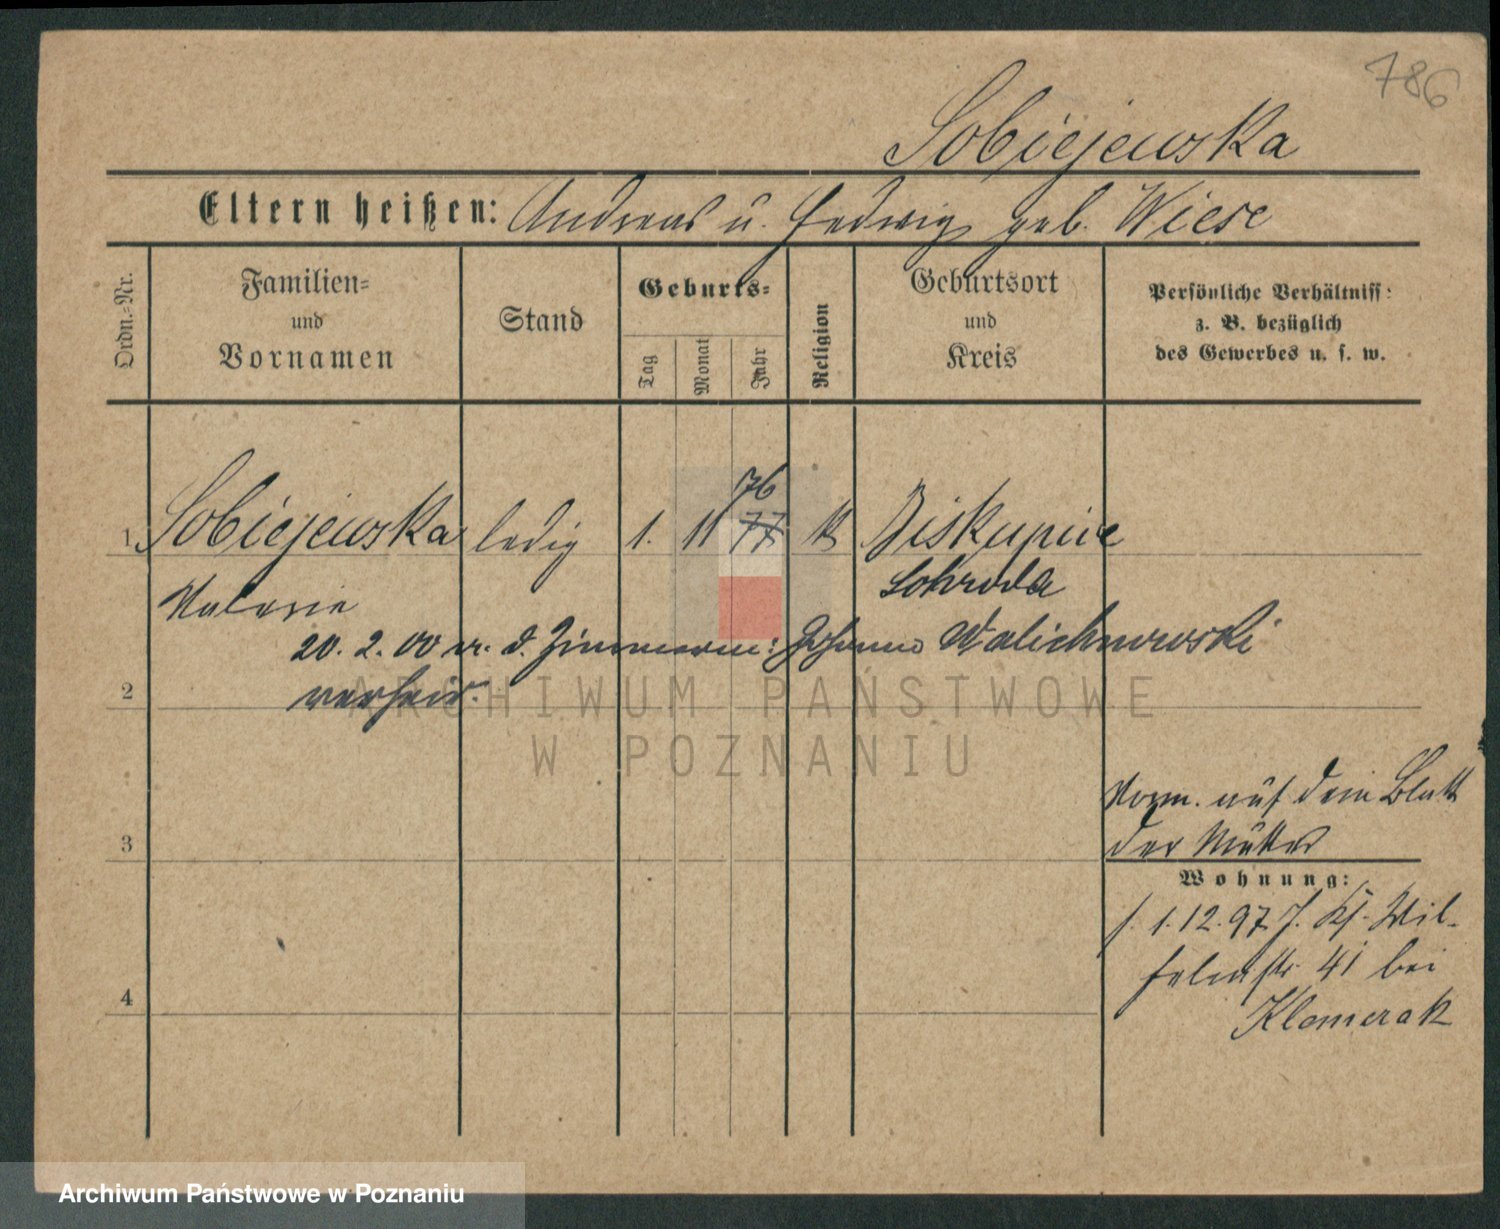 786
Sobiejewska
Eltern heißen: Andreas u. Hedwig geb. Wiese
Ordn.-Nr.
Familien-
und
Vornamen
Stand
Geburts-
Tag
Monat
Jahr
Religion
Geburtsort
und
Kreis
Persönliche Verhältniss:
z. B. bezüglich
des Gewerbes u. s. w.
76
1 Sobiejewska ledig 1. 11 77 k Biskupice
Valerie Schroda
20. 2. 00 m. d. Zimmerm: Johann Walichnowski
2 verheir.
ARCHIWUM PAŃSTWOWE
W POZNANIU
Vorm. auf dem Blatt
3 der Mutter
Wohnung:
f. 1.12.97 J. Ks. Wil-
helmstr. 41 bei
4 Klemerak
Archiwum Państwowe w Poznaniu